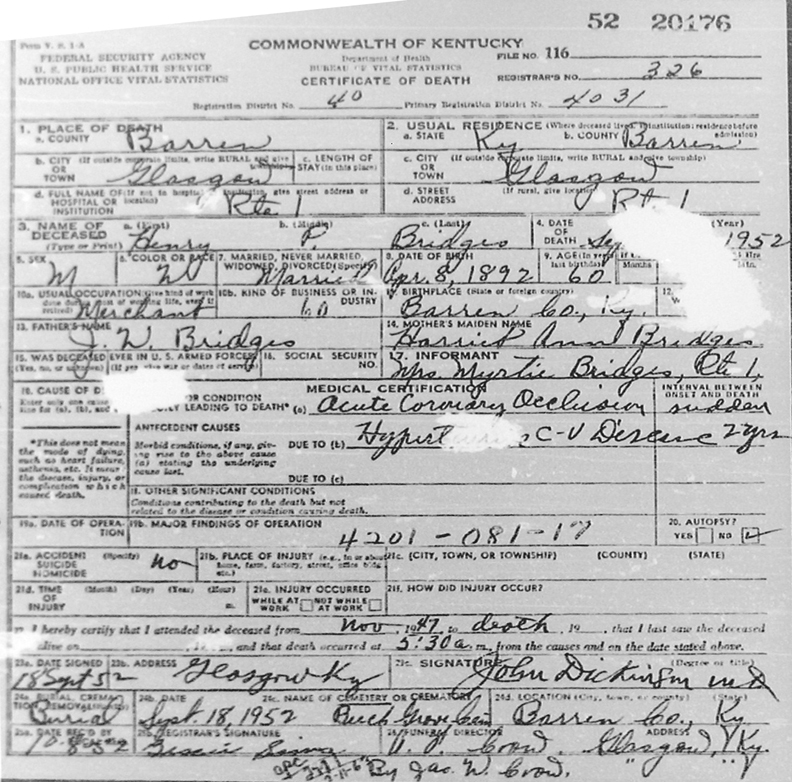 52 20176
Form V. S. 1-A
COMMONWEALTH OF KENTUCKY
FEDERAL SECURITY AGENCY
Department of Health
FILE NO. 116
U. S. PUBLIC HEALTH SERVICE
BUREAU OF VITAL STATISTICS
NATIONAL OFFICE VITAL STATISTICS
CERTIFICATE OF DEATH
REGISTRAR'S NO. 326
Registration District No. 40 Primary Registration District No. 4031
1. PLACE OF DEATH
a. COUNTY Barren
2. USUAL RESIDENCE (Where deceased lived. If institution: residence before admission)
a. STATE Ky b. COUNTY Barren
b. CITY (If outside corporate limits, write RURAL and give
OR
TOWN Glasgow
c. LENGTH OF
STAY (in this place)
c. CITY (If outside corporate limits, write RURAL and give township)
OR
TOWN Glasgow
d. FULL NAME OF (If not in hospital or institution, give street address or location)
HOSPITAL OR
INSTITUTION Rte. 1
d. STREET (If rural, give location)
ADDRESS Rt. 1
3. NAME OF
DECEASED
(Type or Print)
a. (First) Henry
b. (Middle) P.
c. (Last) Bridges
4. DATE
OF
DEATH (Year) 1952
5. SEX M
6. COLOR OR RACE W
7. MARRIED, NEVER MARRIED,
WIDOWED, DIVORCED (Specify) Married
8. DATE OF BIRTH Apr. 8, 1892
9. AGE (In years last birthday) 60
Months
Hrs.
Min.
10a. USUAL OCCUPATION (Give kind of work done during most of working life, even if retired) Merchant
10b. KIND OF BUSINESS OR IN-
DUSTRY
11. BIRTHPLACE (State or foreign country)
Barren Co., Ky.
12.
13. FATHER'S NAME
J. W. Bridges
14. MOTHER'S MAIDEN NAME
Harriet Ann Bridges
15. WAS DECEASED EVER IN U. S. ARMED FORCES
(Yes, no, or unknown) (If yes, give war or dates of service)
16. SOCIAL SECURITY
NO.
17. INFORMANT
Mrs. Myrtie Bridges, Rte 1,
18. CAUSE OF D
Enter only one cause
line for (a), (b), and
MEDICAL CERTIFICATION
OR CONDITION
LY LEADING TO DEATH* (a) Acute Coronary Occlusion
INTERVAL BETWEEN
ONSET AND DEATH
sudden
*This does not mean
the mode of dying,
such as heart failure,
asthenia, etc. It means
the disease, injury, or
complication which
caused death.
ANTECEDENT CAUSES
Morbid conditions, if any, giv-
ing rise to the above cause
(a) stating the underlying
cause last.
DUE TO (b) C-V Disease 2 yrs
DUE TO (c)
II. OTHER SIGNIFICANT CONDITIONS
Conditions contributing to the death but not
related to the disease or condition causing death.
19a. DATE OF OPERA-
TION
19b. MAJOR FINDINGS OF OPERATION
4201 - 081-17
20. AUTOPSY?
YES NO
21a. ACCIDENT (Specify)
SUICIDE
HOMICIDE no
21b. PLACE OF INJURY (e.g., in or about home, farm, factory, street, office bldg., etc.)
21c. (CITY, TOWN, OR TOWNSHIP) (COUNTY) (STATE)
21d. TIME (Month) (Day) (Year) (Hour)
OF
INJURY m.
21e. INJURY OCCURRED
WHILE AT WORK NOT WHILE AT WORK
21f. HOW DID INJURY OCCUR?
I hereby certify that I attended the deceased from Nov 1947 to death, 19 , that I last saw the deceased
alive on , and that death occurred at 5:30 a m., from the causes and on the date stated above.
23a. DATE SIGNED
18 Sept 52
23b. ADDRESS
Glasgow Ky
23c. SIGNATURE (Degree or title)
John Dickinson M.D
24a. BURIAL, CREMA-
TION REMOVAL (Specify)
Burial
24b. DATE
Sept. 18, 1952
24c. NAME OF CEMETERY OR CREMATORY
Beech Grove Cem
24d. LOCATION (City, town, or county) (State)
Barren Co., Ky
25a. DATE REC'D BY
25b. REGISTRAR'S SIGNATURE
26. FUNERAL DIRECTOR ADDRESS
Crow. Glasgow, Ky.
By Jas. W. Crow.